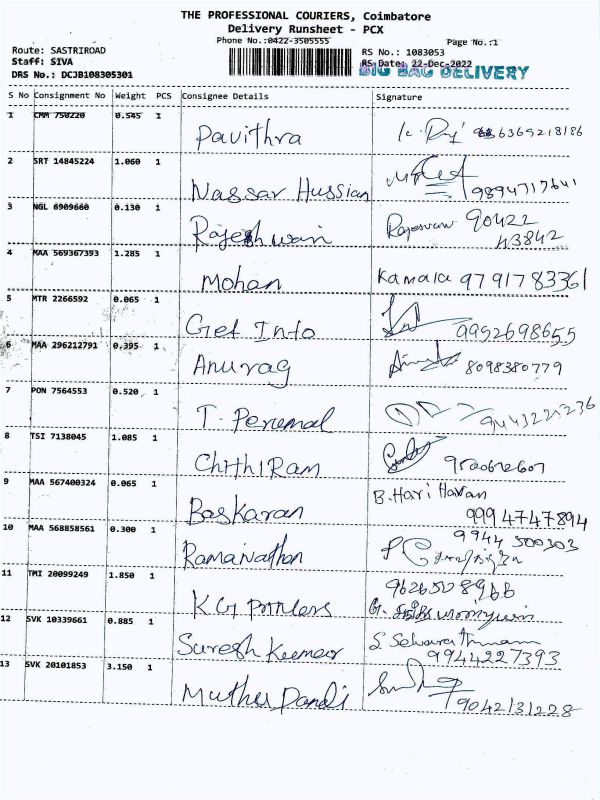 THE PROFESSIONAL COURIERS, Coimbatore
Delivery Runsheet - PCX
Phone No.:0422-3505555
Page No.:1
Route: SASTRIROAD
RS No.: 1083053
Staff: SIVA
RS Date: 22-Dec-2022
DRS No.: DCJB108305301
BIG BAG DELIVERY
S No Consignment No Weight PCS Consignee Details Signature
1 CMM 750220 0.545 1 Pavithra 6369218186
2 SRT 14845224 1.060 1 Nassar Hussian 9894717641
3 NGL 6909660 0.130 1 Rajeshwari 90422
43842
4 MAA 569367393 1.285 1 Mohan Kamala 9791783361
5 MTR 2266592 0.065 1 Get Into 9952698655
6 MAA 296212791 0.395 1 Anurag 8098380779
7 PON 7564553 0.520 1 T. Perumal 9443221236
8 TSI 7138045 1.085 1 Chithiram
9 MAA 567400324 0.065 1 Baskaran B. Hari Haran
9994747894
10 MAA 568858561 0.300 1 Ramanathan 9944 500303
11 TMI 20099249 1.850 1 KG Printers 9626508966
12 SVK 10339661 0.885 1 Suresh Kumar S
9944227393
13 SVK 20101853 3.150 1 Muthu Pandi 9042131228